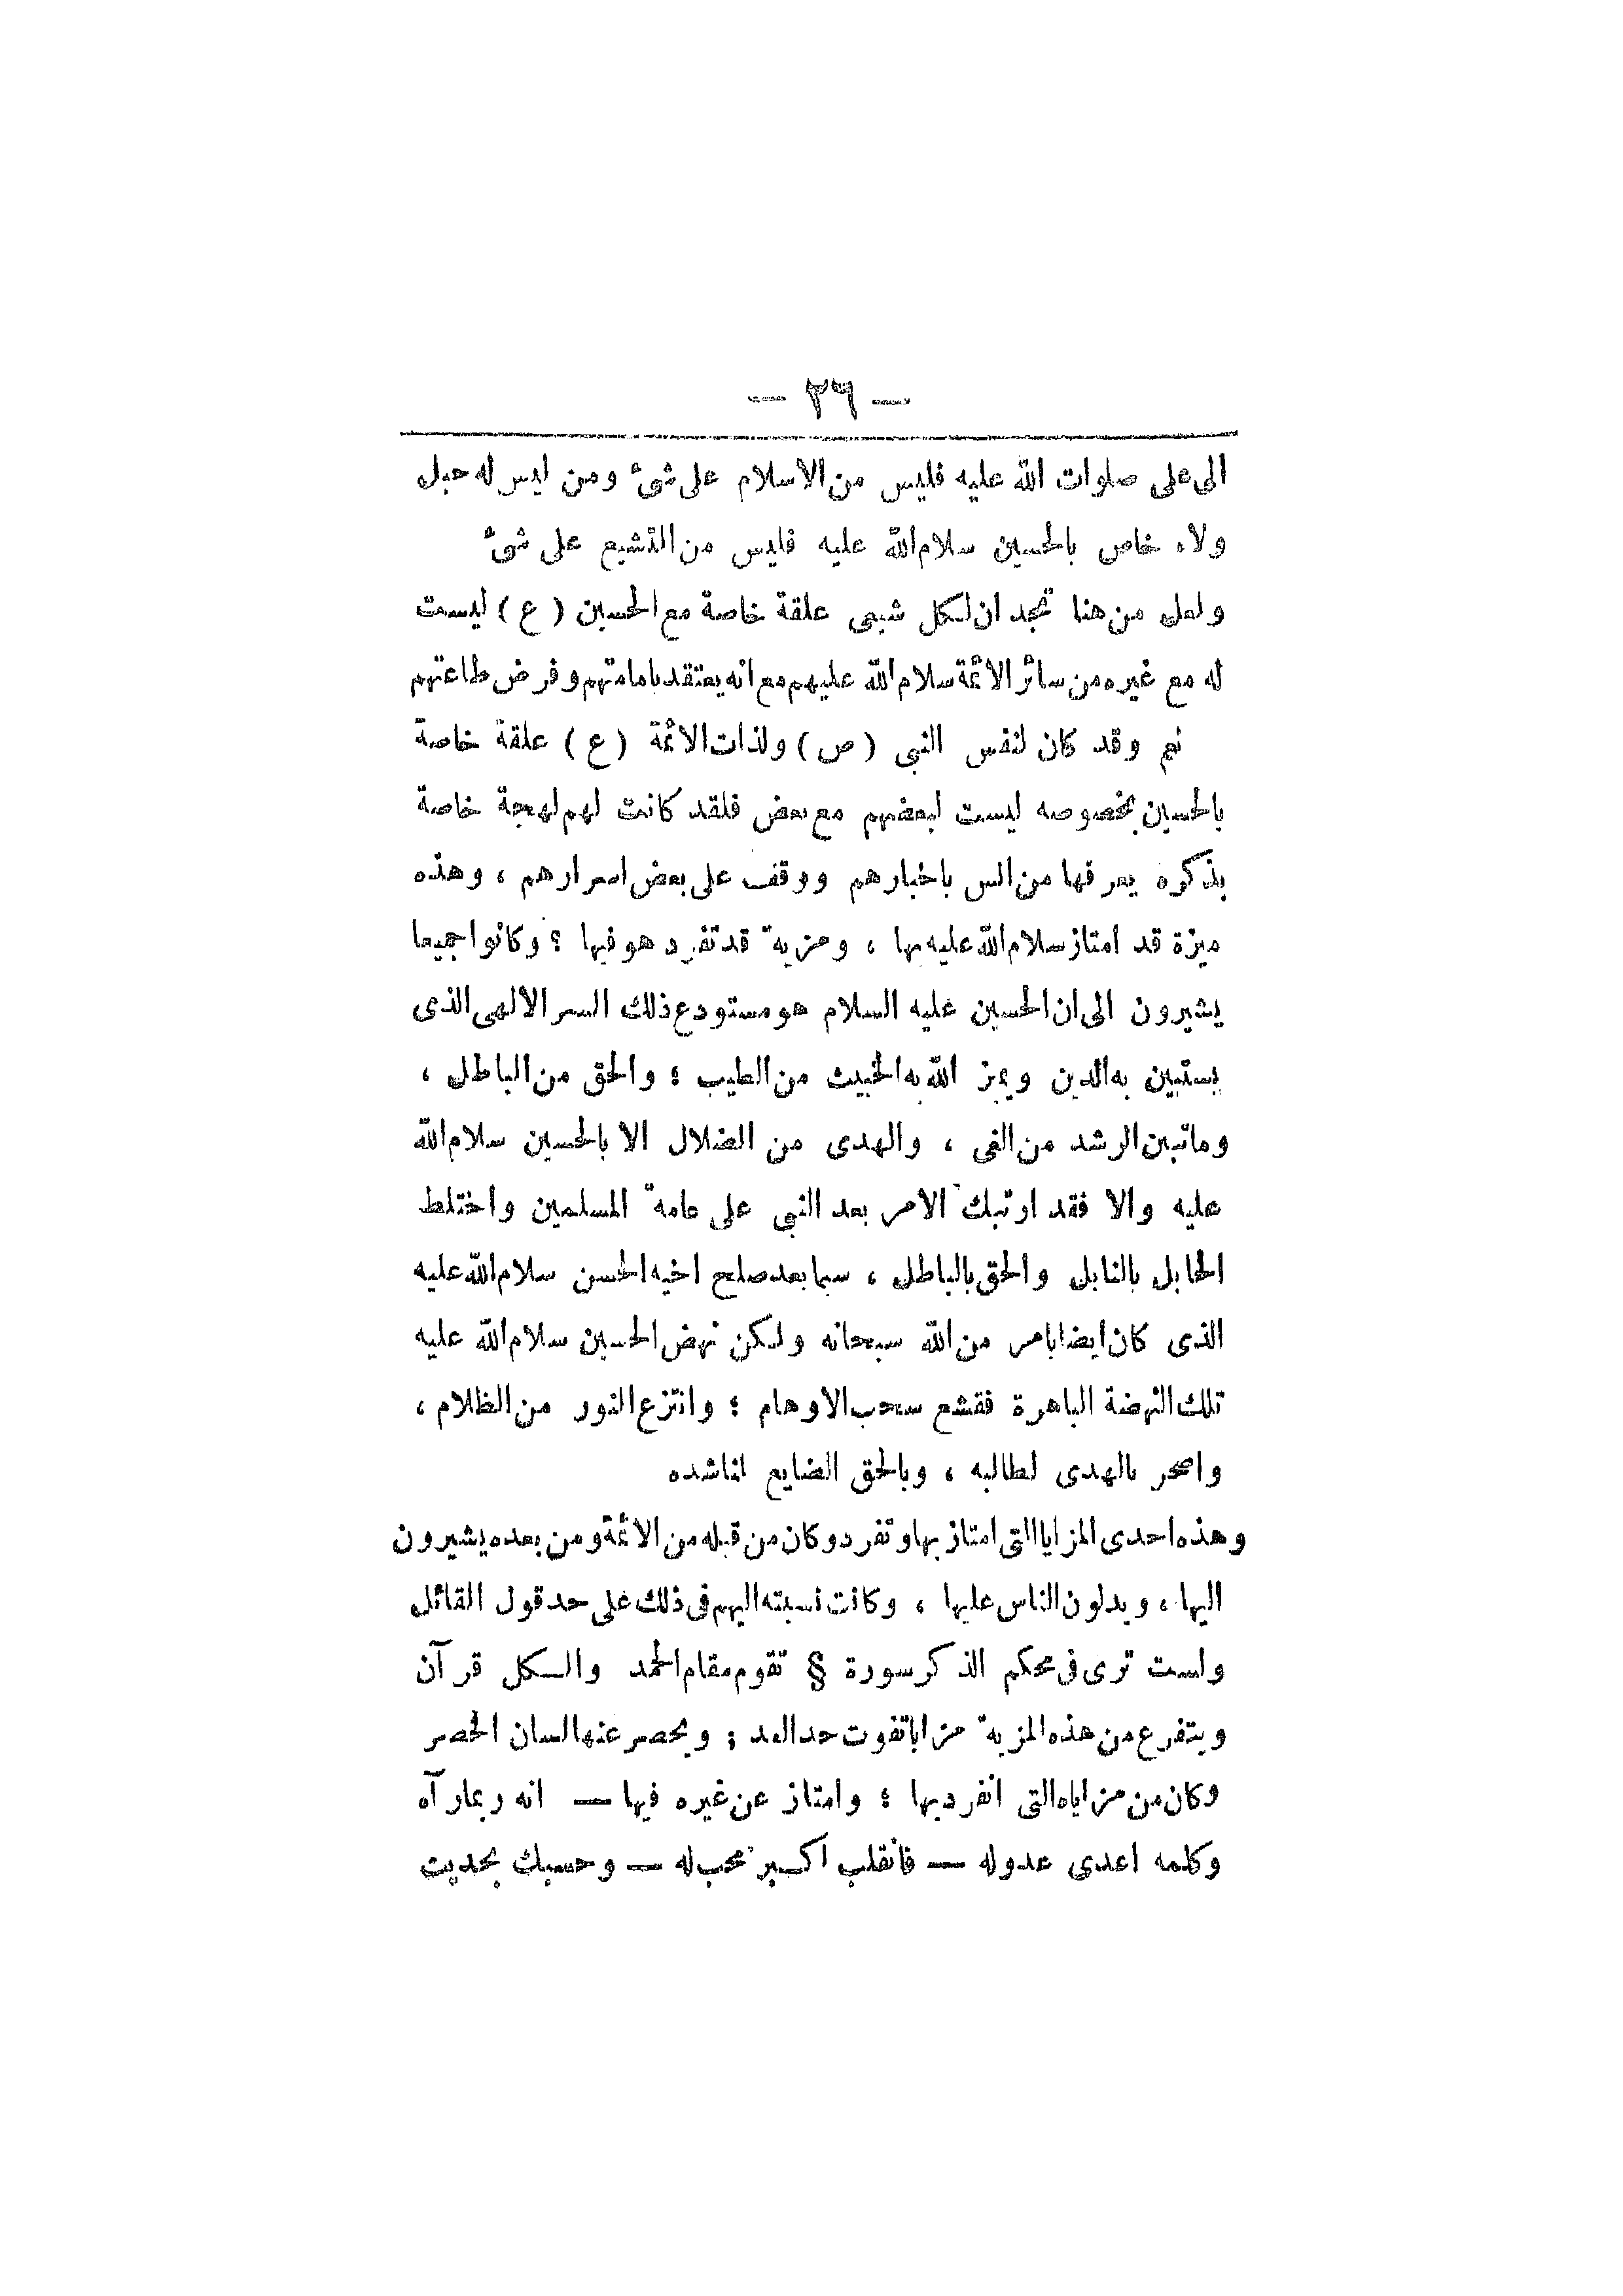 — ٢٦ —
الى على صلوات الله عليه فليس من الاسلام على شئ ومن ليس له حبل
ولاء خاص بالحسين سلام الله عليه فليس من التشيع على شئ
ولعل من هنا تجد ان لكل شيعى علقة خاصة مع الحسين ( ع ) ليست
له مع غيره من سائر الائمة سلام الله عليهم مع انه يعتقد بامامتهم وفرض طاعتهم
نعم وقد كان لنفس النبي ( ص ) ولذات الائمة ( ع ) علقة خاصة
بالحسين بخصوصه ليست لبعضهم مع بعض فلقد كانت لهم لهجة خاصة
بذكره يعرفها من انس باخبارهم ووقف على بعض اسرارهم ، وهذه
ميزة قد امتاز سلام الله عليه بها ، ومزية قد تفرد هو فيها ؛ وكانوا جميعا
يشيرون الى ان الحسين عليه السلام هو مستودع ذلك السر الالهى الذى
يستبين به الدين ويميز الله به الخبيث من الطيب ؛ والحق من الباطل ،
وما تبين الرشد من الغى ، والهدى من الضلال الا بالحسين سلام الله
عليه والا فقد ارتبك الامر بعد النبي على عامة المسلمين واختلط
الحابل بالنابل والحق بالباطل ، سيما بعد صلح اخيه الحسن سلام الله عليه
الذى كان ايضا بامر من الله سبحانه ولكن نهض الحسين سلام الله عليه
تلك النهضة الباهرة فقشع سحب الاوهام ؛ وانتزع النور من الظلام ،
واصحر بالهدى لطالبه ، وبالحق الضايع لناشده
وهذه احدى المزايا التى امتاز بها وتفرد وكان من قبله من الائمة ومن بعده يشيرون
اليها ، ويدلون الناس عليها ، وكانت نسبته اليهم فى ذلك على حد قول القائل
ولست ترى فى محكم الذكر سورة § تقوم مقام الحمد والكل قرآن
ويتفرع من هذه المزية مزايا تفوت حد العد ; ويحصر عنها لسان الحصر
وكان من مزاياه التى انفرد بها ؛ وامتاز عن غيره فيها — انه ربما رآه
وكلمه اعدى عدو له — فانقلب اكبر محب له — وحسبك بحديث